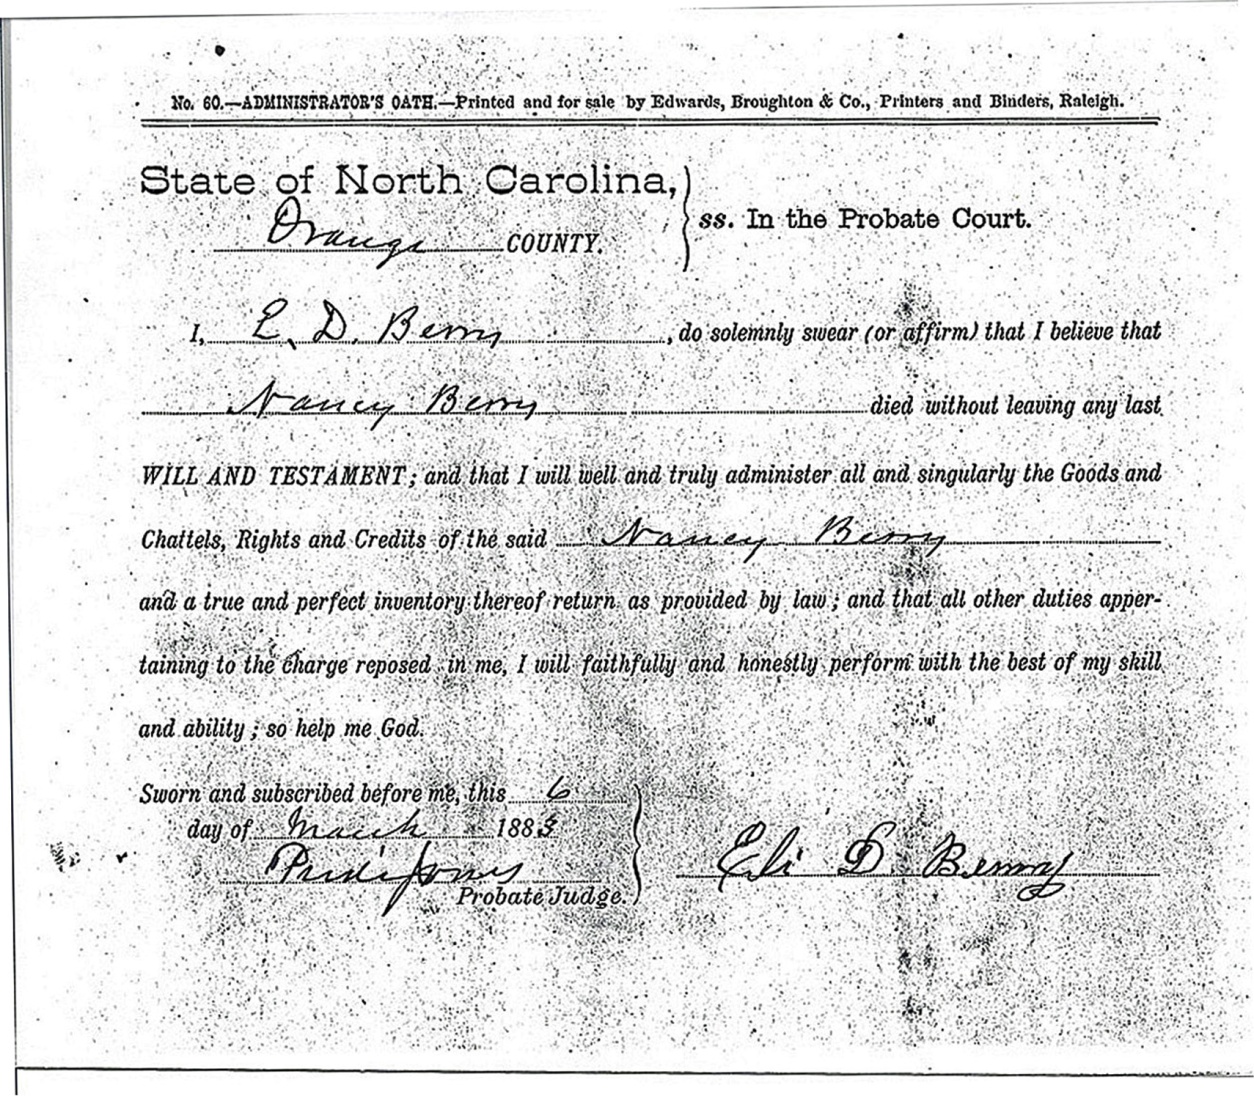 No. 60.—ADMINISTRATOR'S OATH.—Printed and for sale by Edwards, Broughton & Co., Printers and Binders, Raleigh.
State of North Carolina,
Orange COUNTY.
ss. In the Probate Court.
I, E. D. Berry, do solemnly swear (or affirm) that I believe that
Nancy Berry died without leaving any last
WILL AND TESTAMENT; and that I will well and truly administer all and singularly the Goods and
Chattels, Rights and Credits of the said Nancy Berry
and a true and perfect inventory thereof return as provided by law; and that all other duties apper-
taining to the charge reposed in me, I will faithfully and honestly perform with the best of my skill
and ability; so help me God.
Sworn and subscribed before me, this 6
day of March 1883
Jones
Probate Judge.
Eli D. Berry